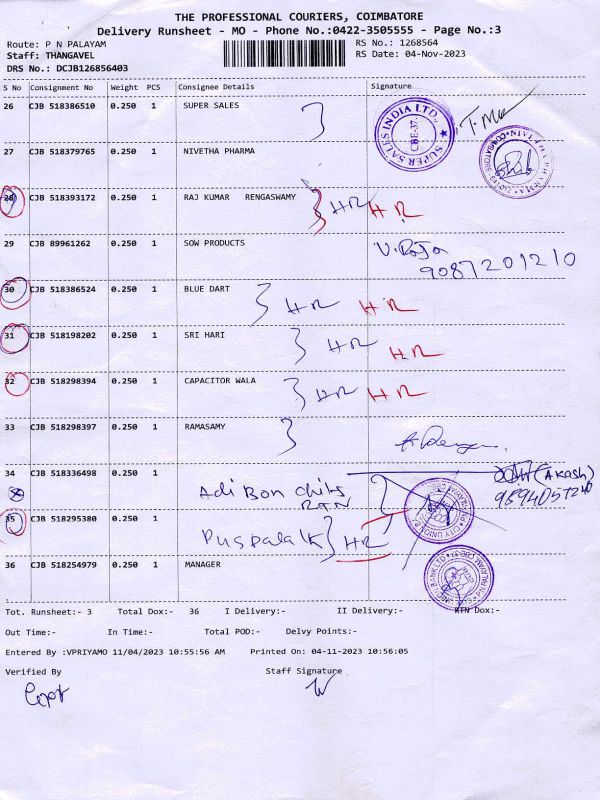 THE PROFESSIONAL COURIERS, COIMBATORE
Delivery Runsheet - MO - Phone No.:0422-3505555 - Page No.:3
Route: P N PALAYAM RS No.: 1268564
Staff: THANGAVEL RS Date: 04-Nov-2023
DRS No.: DCJB126856403
S No Consignment No Weight PCS Consignee Details Signature
26 CJB 518386510 0.250 1 SUPER SALES
SUPER SALES INDIA LTD. CBE-37
27 CJB 518379765 0.250 1 NIVETHA PHARMA
28 CJB 518393172 0.250 1 RAJ KUMAR RENGASWAMY HR HR
29 CJB 89961262 0.250 1 SOW PRODUCTS V. Raja
9087201210
30 CJB 518386524 0.250 1 BLUE DART HR HR
31 CJB 518198202 0.250 1 SRI HARI HR HR
32 CJB 518298394 0.250 1 CAPACITOR WALA HR HR
33 CJB 518298397 0.250 1 RAMASAMY
34 CJB 518336498 0.250 1 Adi Bon chits (Akash)
RTN
35 CJB 518295380 0.250 1 HR
CITY UNION B
36 CJB 518254979 0.250 1 MANAGER
BANK LTD
Tot. Runsheet:- 3 Total Dox:- 36 I Delivery:- II Delivery:- RTN Dox:-
Out Time:- In Time:- Total POD:- Delvy Points:-
Entered By :VPRIYAMO 11/04/2023 10:55:56 AM Printed On: 04-11-2023 10:56:05
Verified By Staff Signature